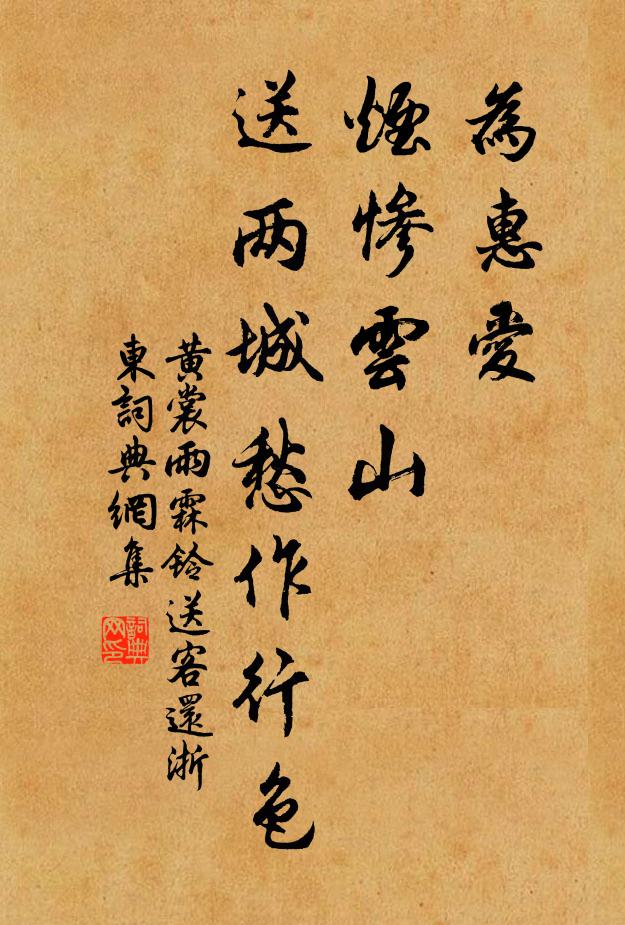 為惠愛
煙慘雲山
送兩城愁作行色
黃裳雨霖鈴送客還浙
東詞典網集
詞典
网印